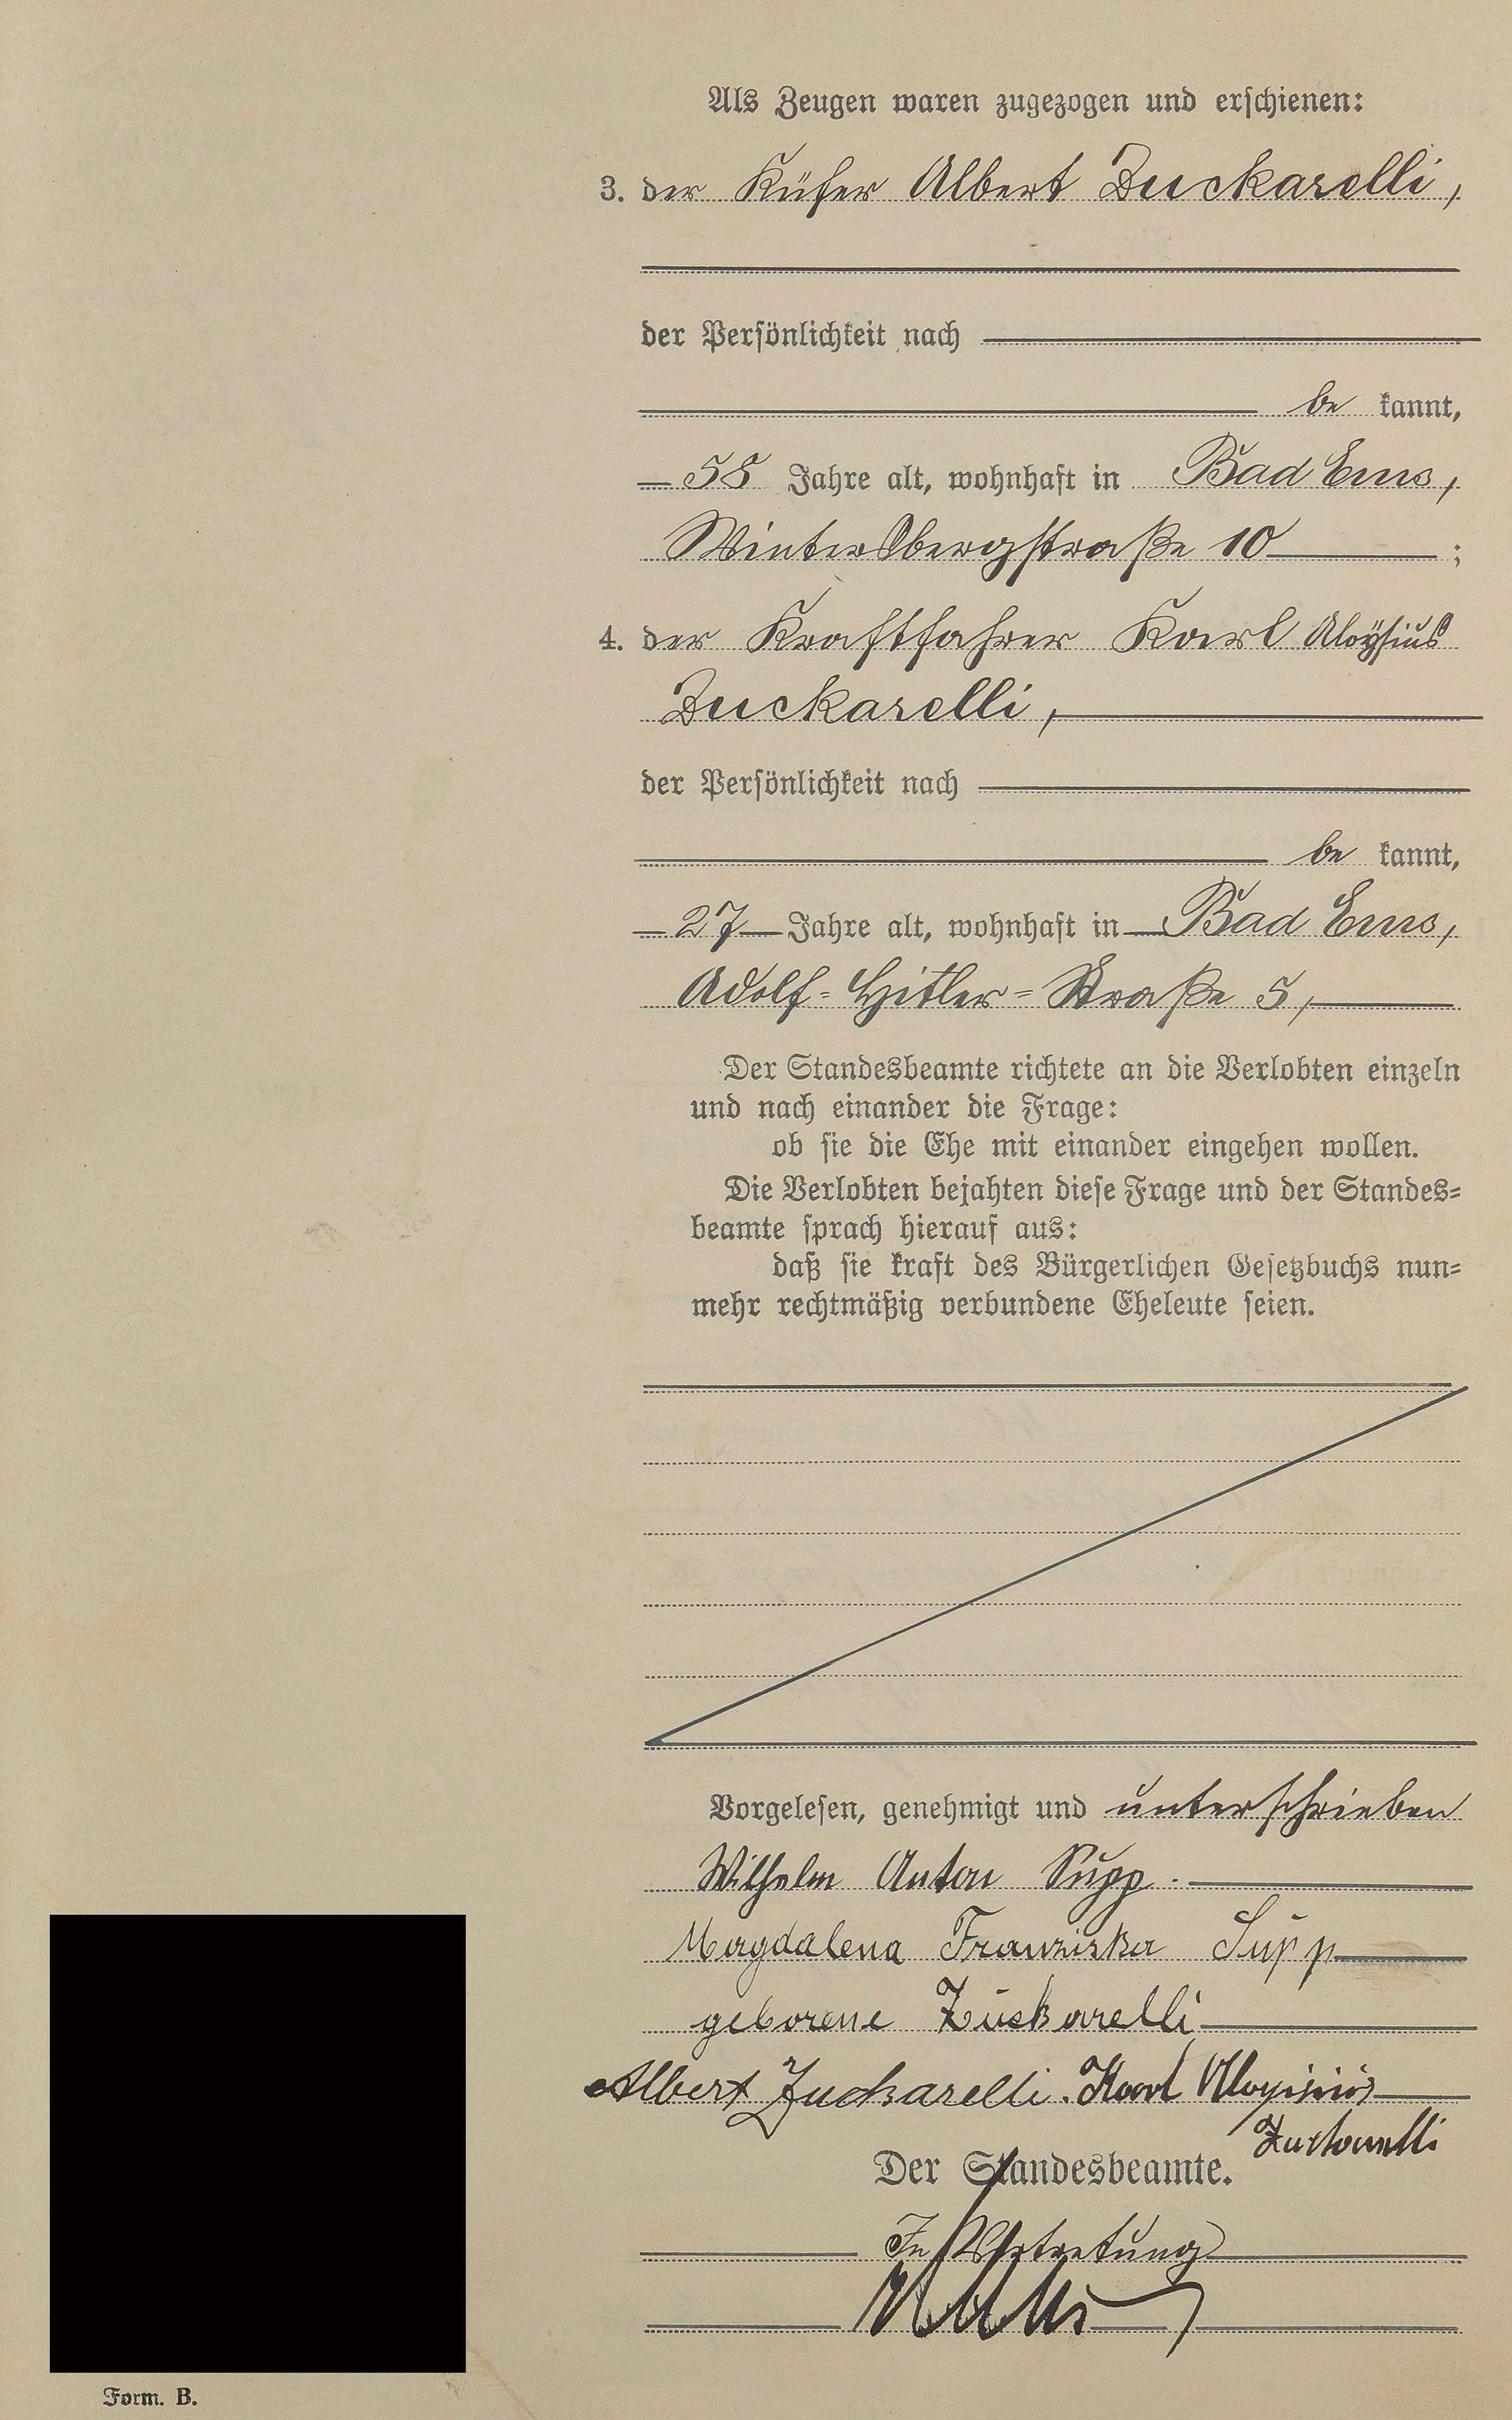 Als Zeugen waren zugezogen und erschienen:
3. der Küfer Albert Zuckarelli,
der Persönlichkeit nach
be kannt,
58 Jahre alt, wohnhaft in Bad Ems,
Wintersbergstraße 10 ;
4. der Kraftfahrer Karl Aloysius
Zuckarelli,
der Persönlichkeit nach
be kannt,
27 Jahre alt, wohnhaft in Bad Ems,
Adolf=Hitler=Straße 5,
Der Standesbeamte richtete an die Verlobten einzeln
und nach einander die Frage:
ob sie die Ehe mit einander eingehen wollen.
Die Verlobten bejahten diese Frage und der Standes=
beamte sprach hierauf aus:
daß sie kraft des Bürgerlichen Gesetzbuchs nun=
mehr rechtmäßig verbundene Eheleute seien.
Vorgelesen, genehmigt und unterschrieben
Wilhelm Anton Supp.
Magdalena Franziska Supp
geborene Zuckarelli
Albert Zuckarelli. Karl Aloysius
Zuckarelli
Der Standesbeamte.
In Vertretung
Form. B.